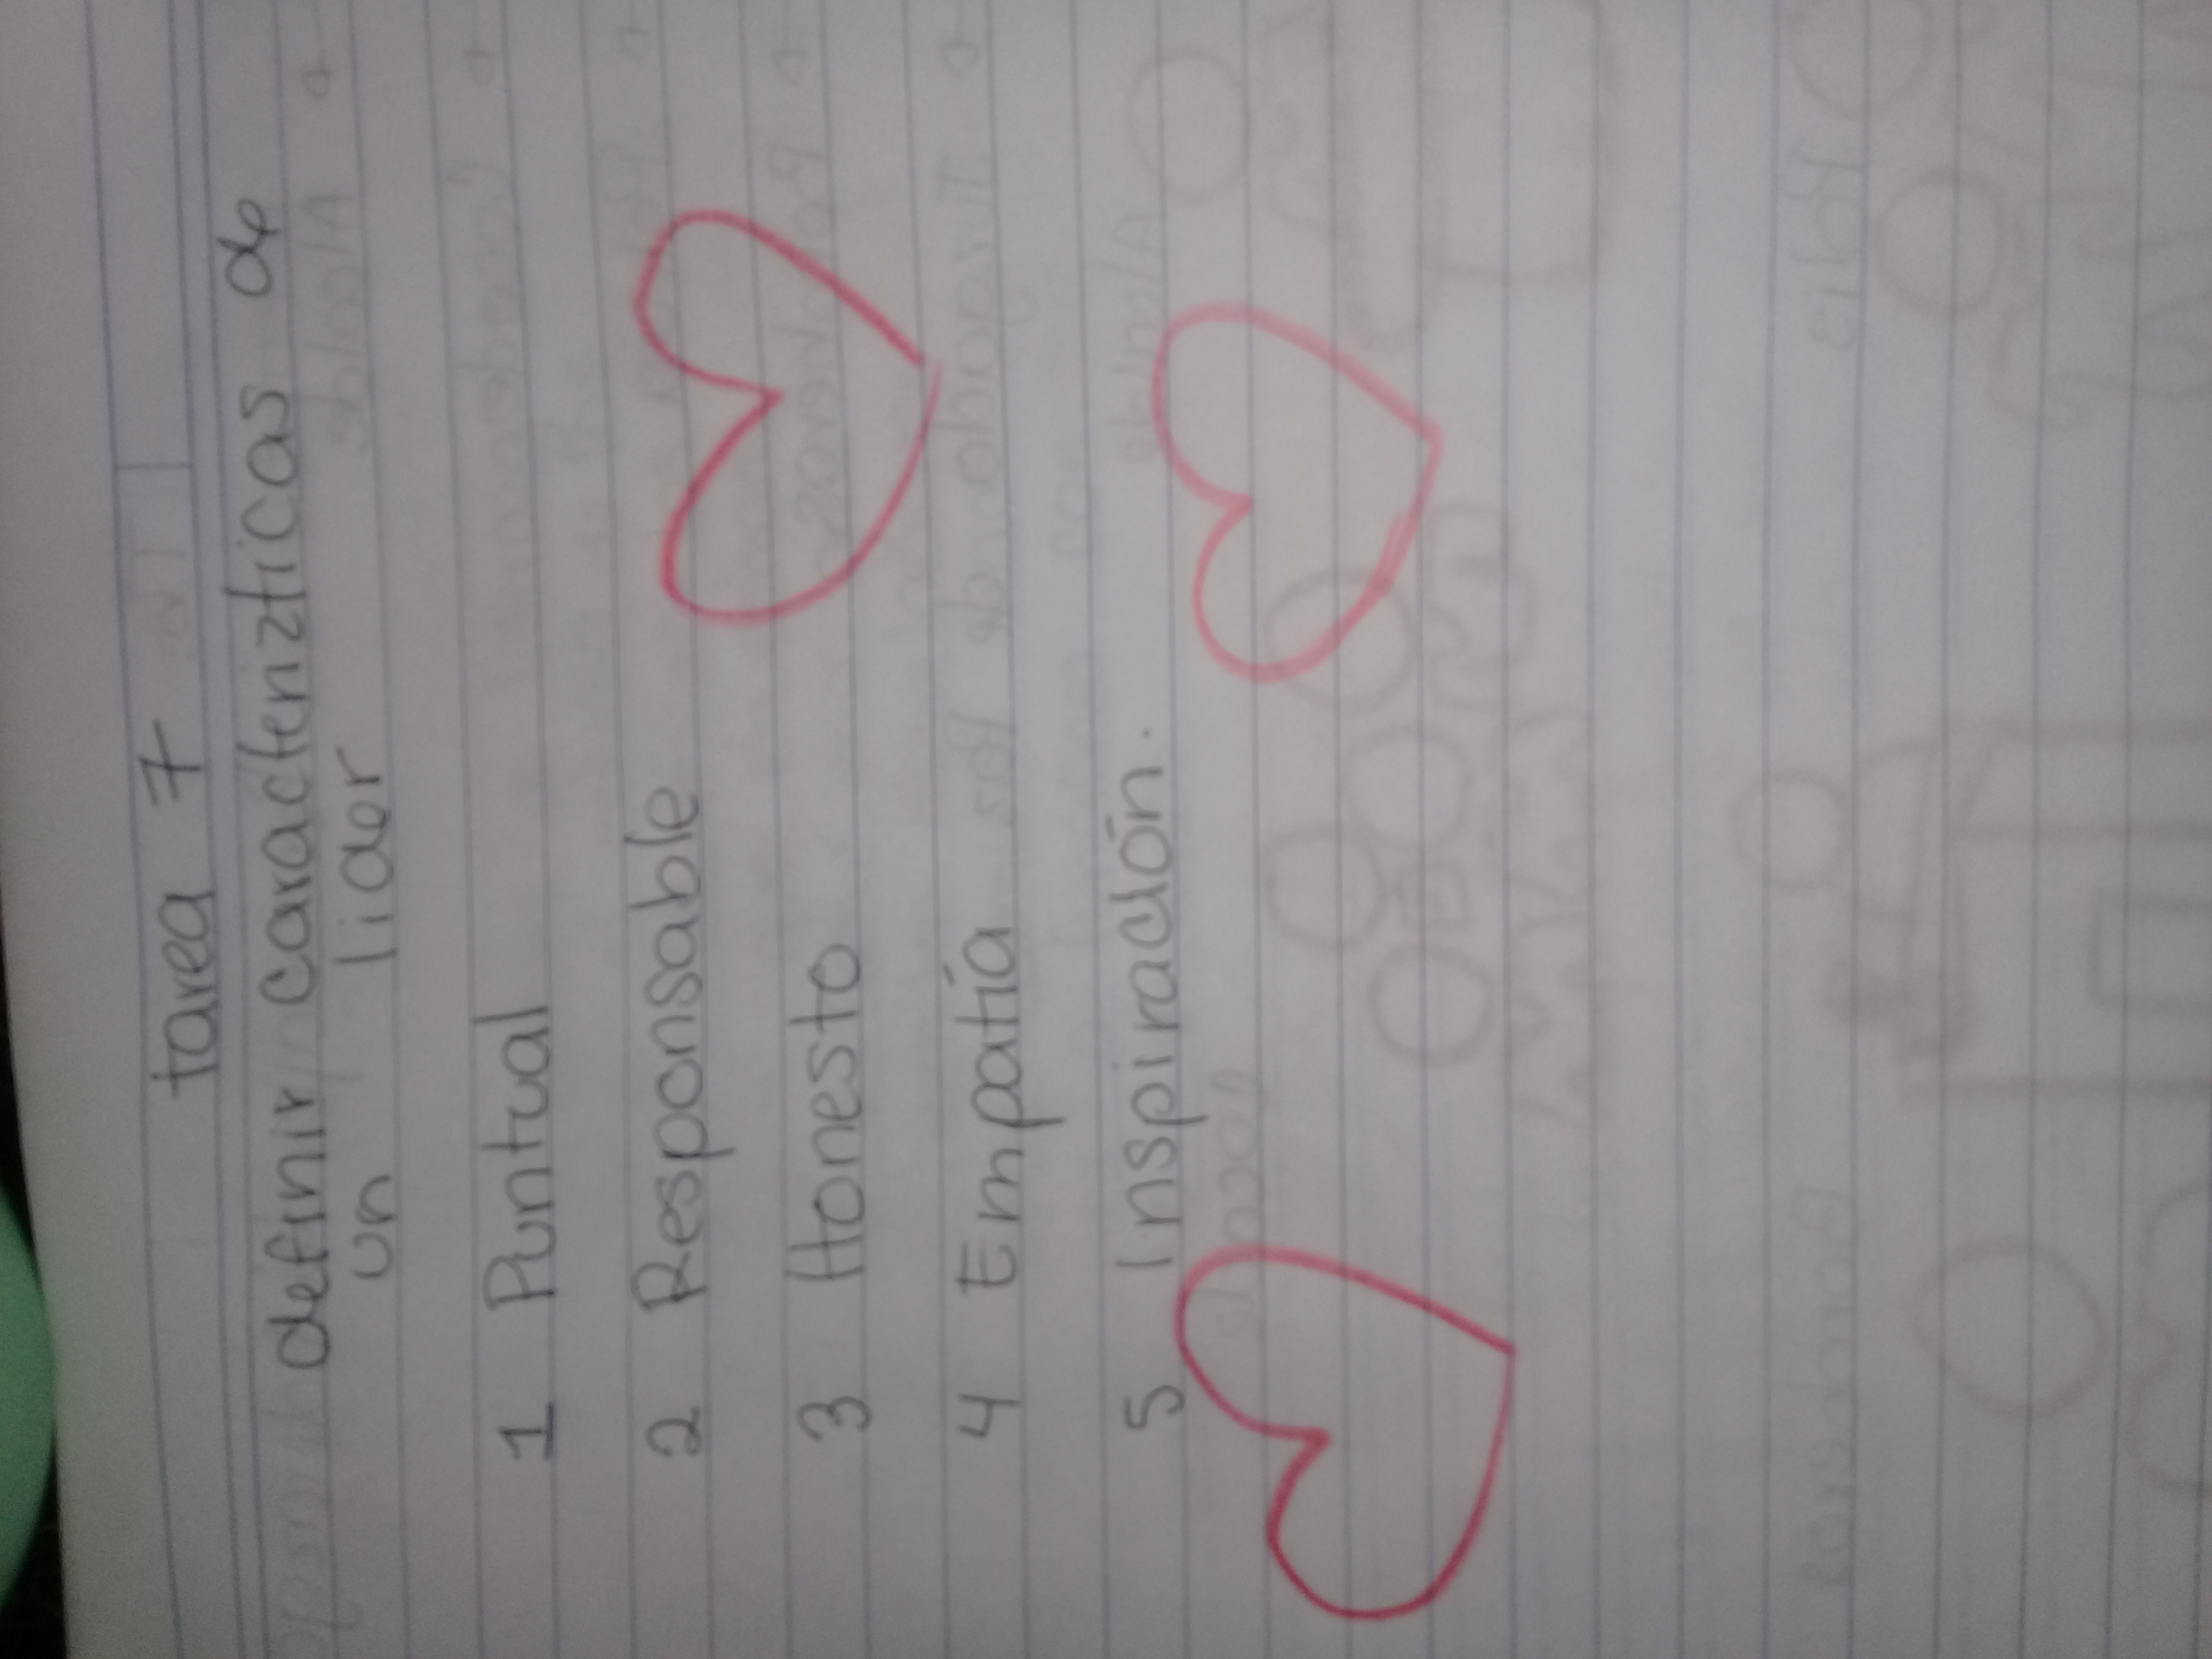 tarea 7
definir caracterizticas de
un lider
1 Puntual
2 Responsable
3 Honesto
4 Empatía
5 Inspiración.